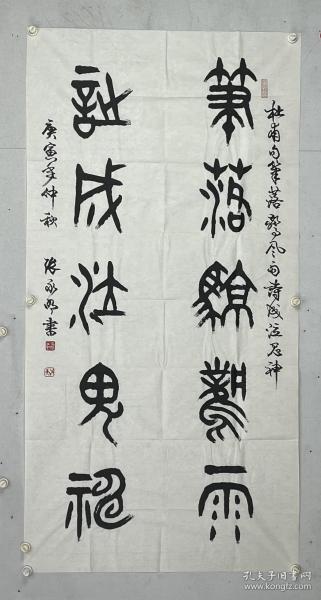 杜甫句筆落驚風雨詩成泣鬼神
筆落驚風雨
詩成泣鬼神
庚寅年仲秋
孔夫子旧书网
www.kongfz.com